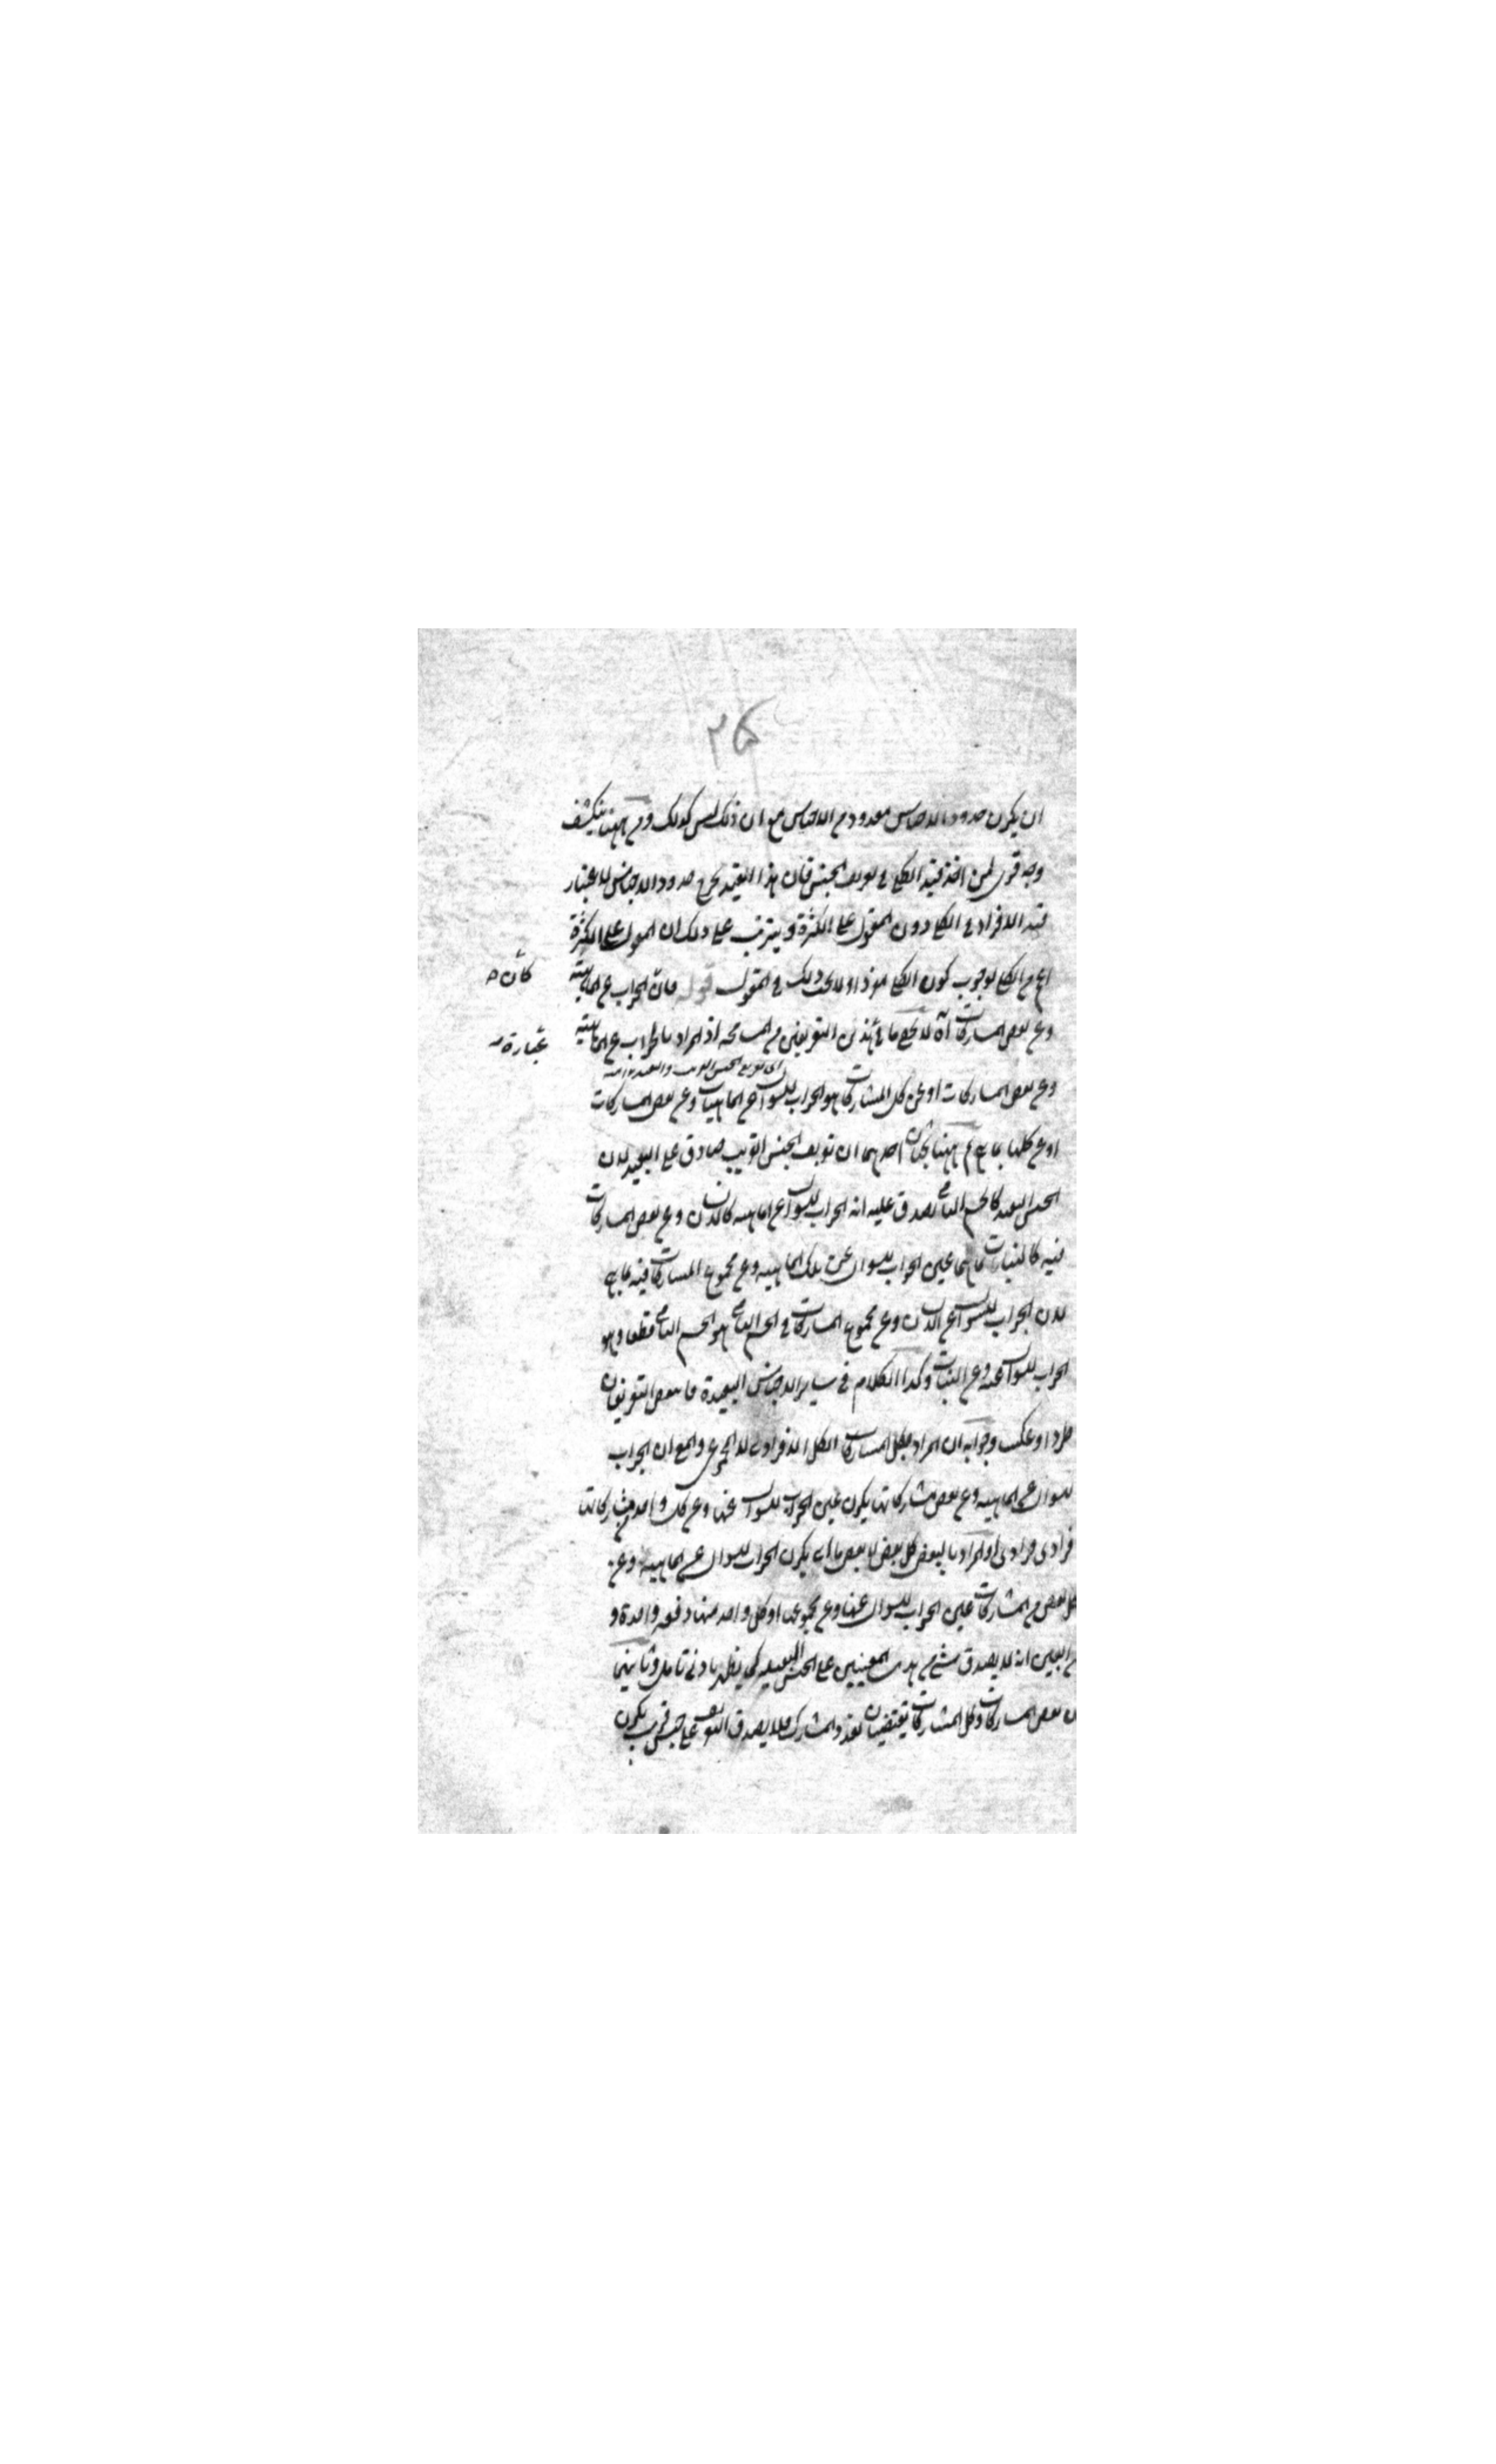 ٢٥
ان يكون حدود الاجناس معدودة من الاجناس مع ان ذلك ليس كذلك ومن ههنا ينكشف
وجه قوي لمن اخذ قيد الكلي في تعريف الجنس فان هذا القيد يخرج حدود الاجناس لاعتبار
قيد الافراد في الكلي دون المقول على الكثرة ويترتب على ذلك ان المقول على الكثرة
اعم من الكلي لوجوب كون الكلي مفردا ولا يجب ذلك في المقول قوله فان الجواب عن الماهية
كأن
وعن بعض المشاركات آه لا يخفى ما في هذين التعريفين من المسامحة اذ المراد بالجواب عن الماهية
عبارة
اي تعريفي الجنس القريب والبعيد
وعن بعض المشاركات او عن كل المشاركات هو الجواب للسؤال عن الماهيات وعن بعض المشاركات
او عن كلها بما هي ثم ههنا بحثان احدهما ان تعريف الجنس القريب صادق على البعيد لان
الجنس البعيد كالجسم النامي يصدق عليه انه الجواب للسؤال عن الماهية كالانسان وعن بعض المشاركات
فيه كالنباتات بما هما عين الجواب للسؤال عن تلك الماهية وعن مجموع المشاركات فيه بما هي
لان الجواب للسؤال عن الانسان وعن مجموع المشاركات في الجسم النامي هو الجسم النامي قطعا وهو
الجواب للسؤال عنه وعن النبات وكذا الكلام في سائر الاجناس البعيدة فانتقض التعريفان
طردا وعكسا وجوابه ان المراد بكل المشاركات الكل الافرادي لا المجموعي والمعنى ان الجواب
للسؤال عن الماهية وعن بعض مشاركاتها يكون عين الجواب للسؤال عنها وعن كل واحد من مشاركاتها
فرادى فرادى او المراد بالبعض كل بعض لا بعض ما اي يكون الجواب للسؤال عن الماهية وعن
كل بعض من المشاركات عين الجواب للسؤال عنها وعن مجموعها او كل واحد منها دفعة واحدة و
من البين انه لا يصدق شيء من هذين المعنيين على الجنس البعيد كما يظهر بادنى تامل وثانيهما
ان بعض المشاركات وكل المشاركات يقتضيان تعدد المشارك فلا يصدق التعريف على جنس قريب يكون